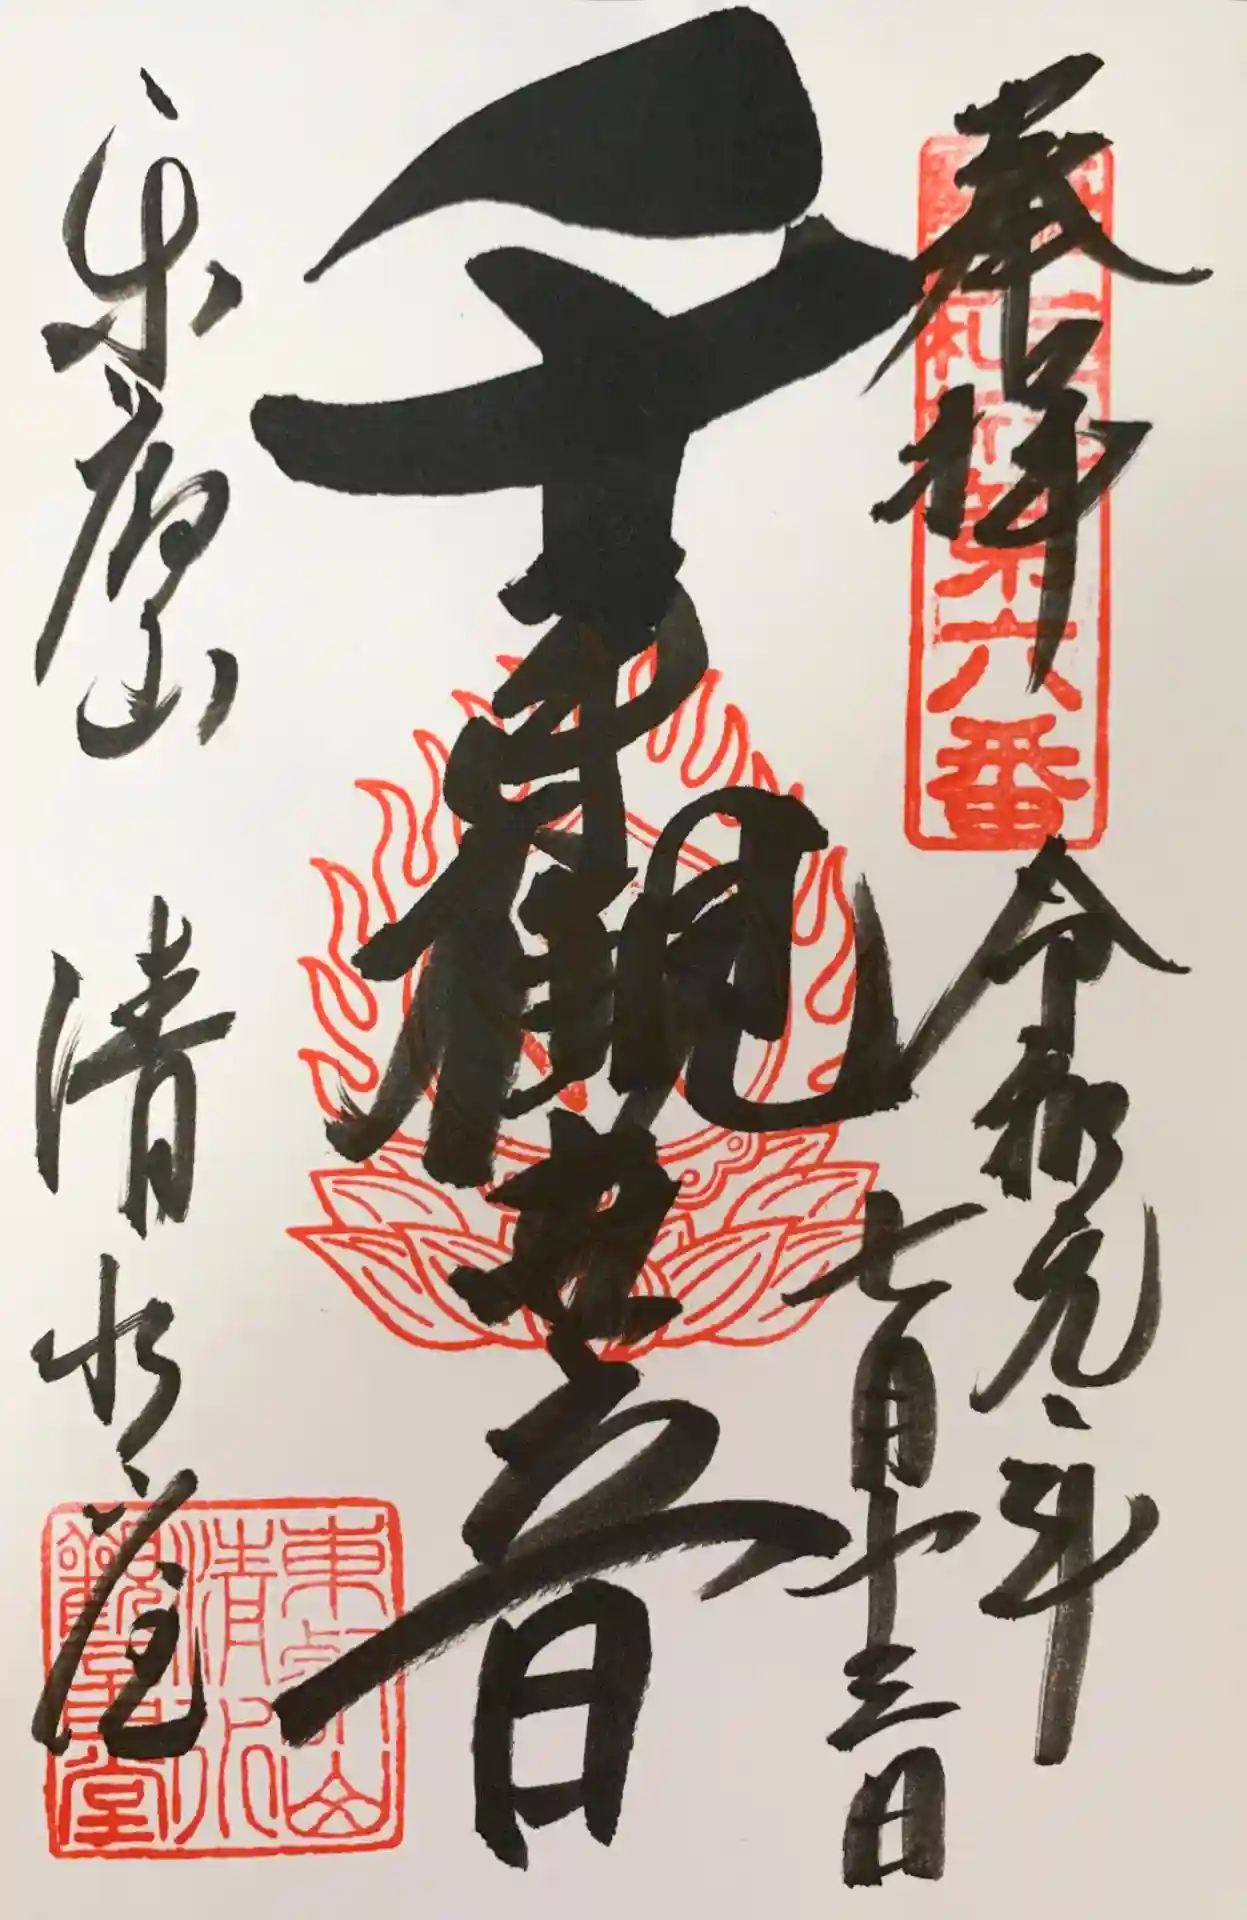 奉拝
札所第六番
令和元年
七月十三日
千手觀世音
東叡山 清水堂
東叡山
清水
觀音堂